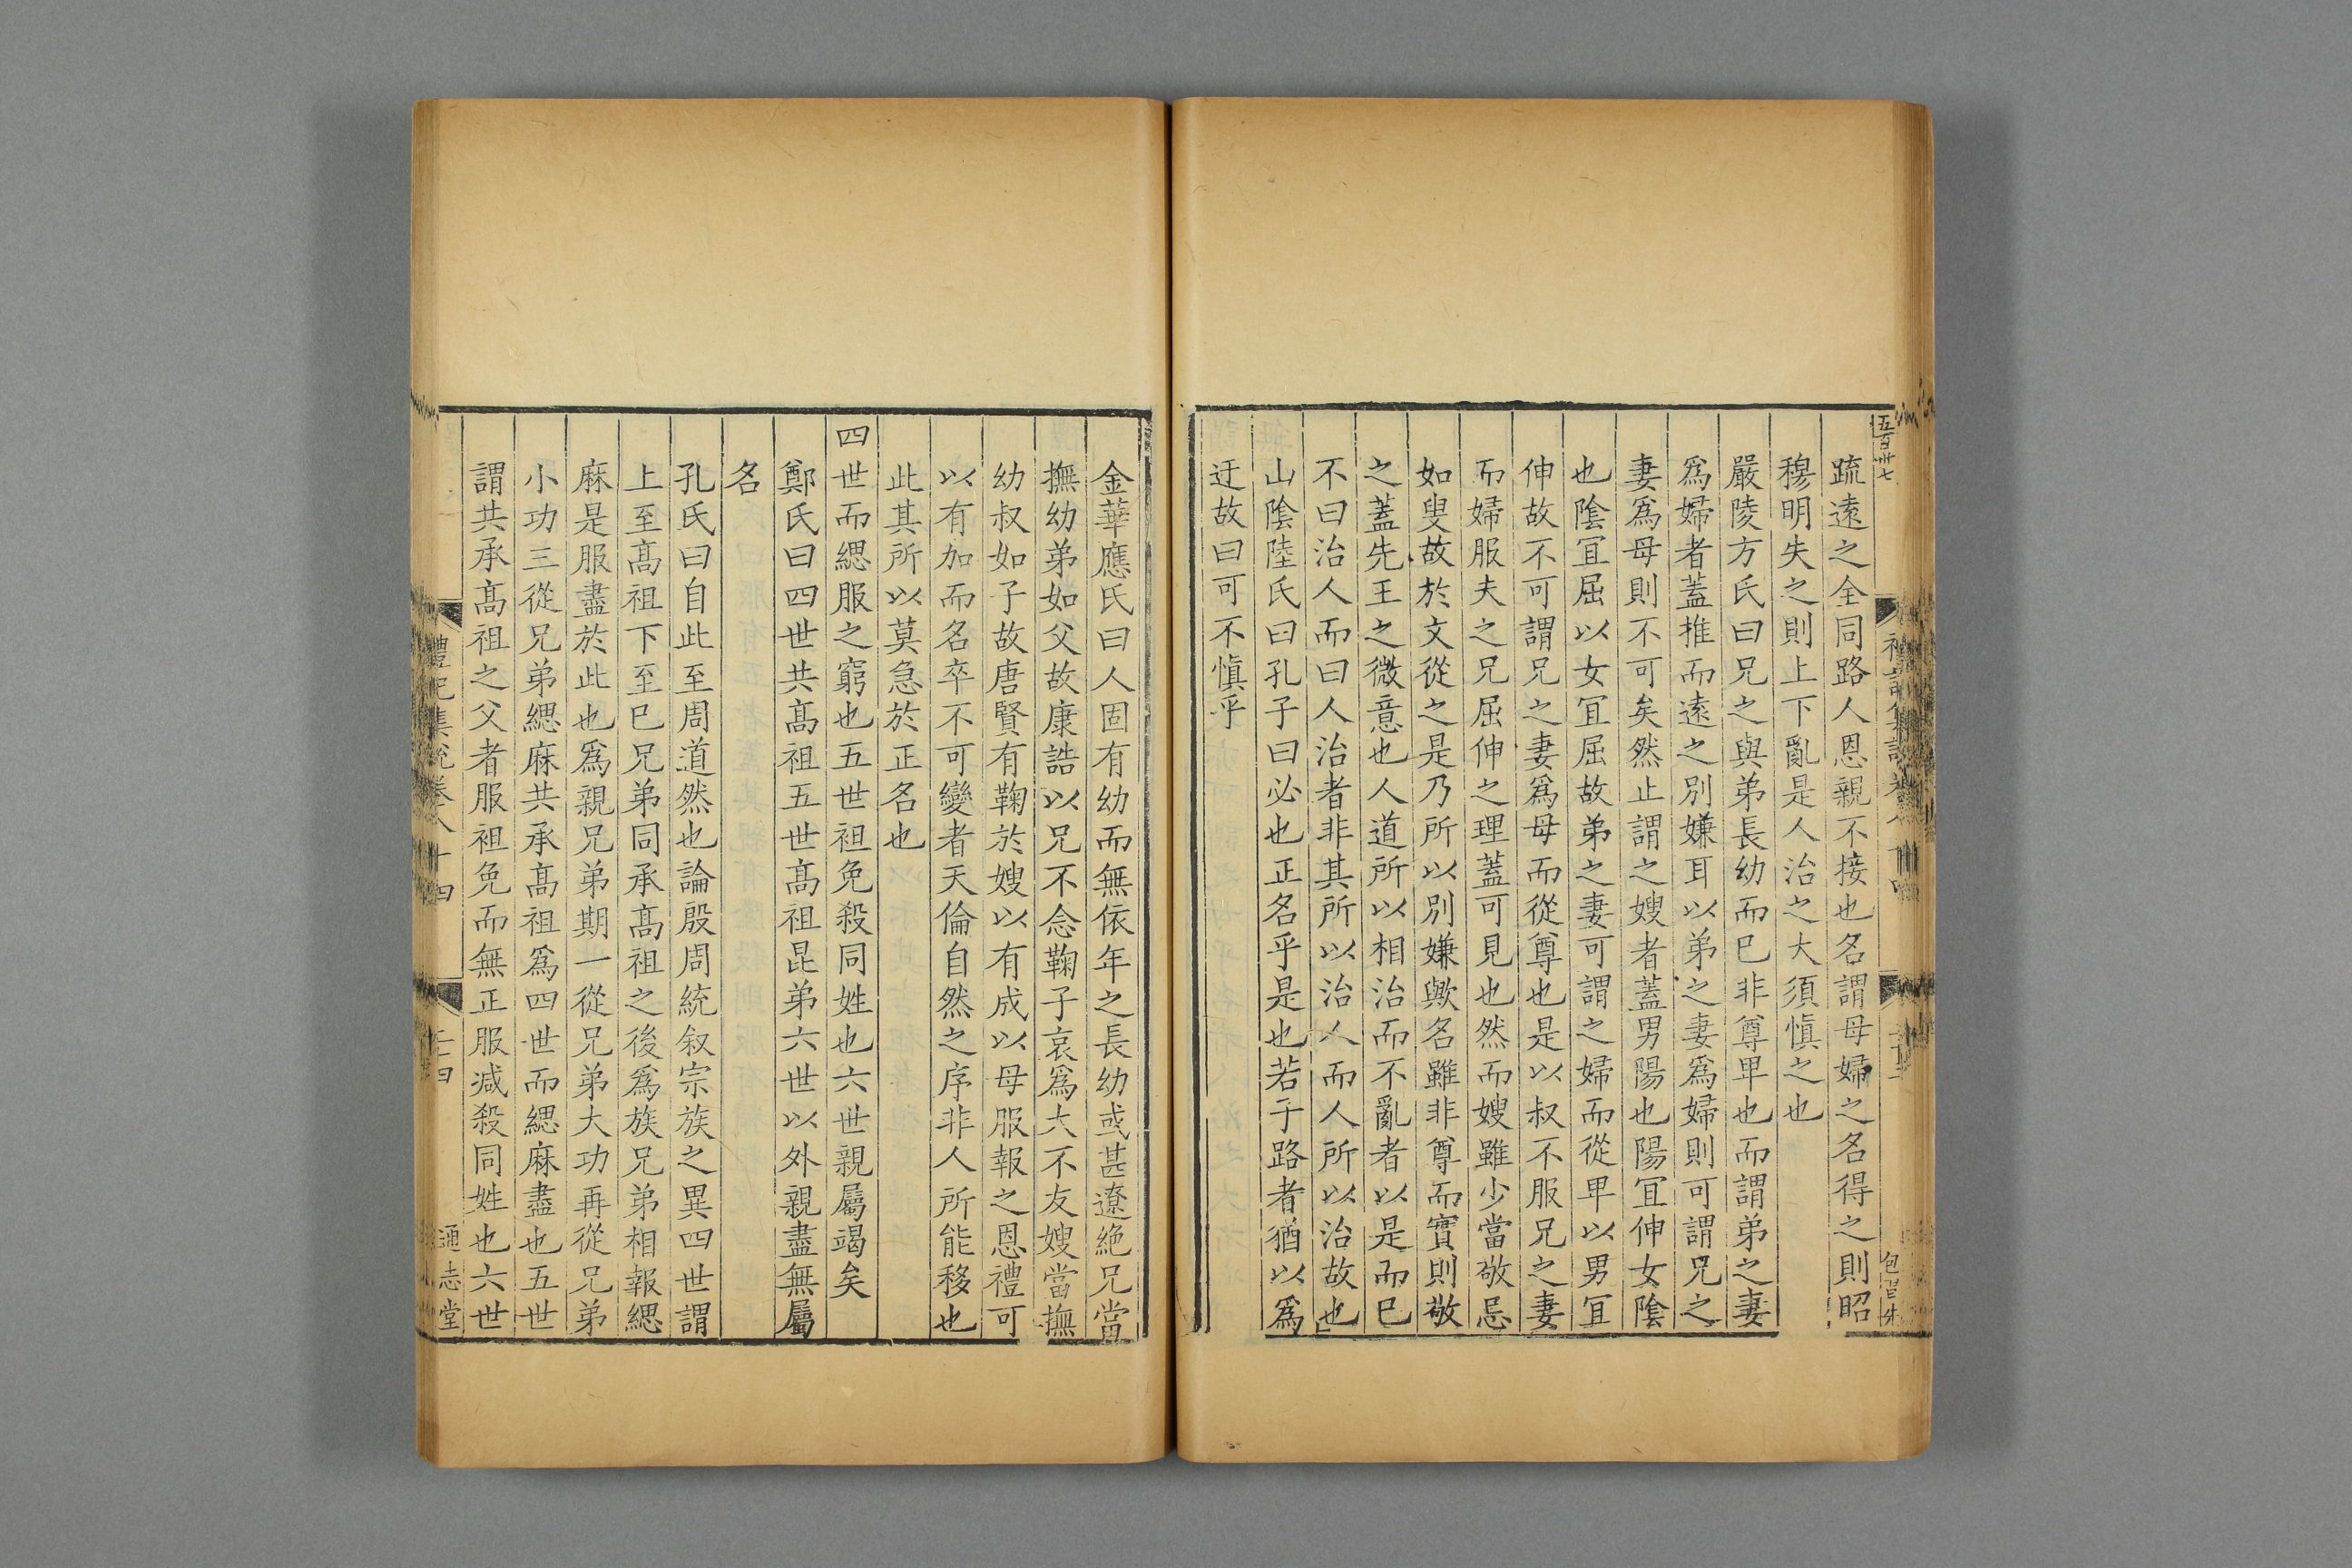 五百卅七
疏遠之全同路人恩親不接也名謂母婦之名得之則昭
穆明失之則上下亂是人治之大須慎之也
嚴陵方氏曰兄之與弟長幼而巳非尊卑也而謂弟之妻
爲婦者蓋推而遠之別嫌耳以弟之妻爲婦則可謂兄之
妻爲母則不可矣然止謂之嫂者蓋男陽也陽冝伸女陰
也陰冝屈以女冝屈故弟之妻可謂之婦而從卑以男冝
伸故不可謂兄之妻爲母而從尊也是以叔不服兄之妻
而婦服夫之兄屈伸之理蓋可見也然而嫂雖少當敬忌
如叟故於文從之是乃所以別嫌歟名雖非尊而實則敬
之蓋先王之微意也人道所以相治而不亂者以是而巳
不曰治人而曰人治者非其所以治人而人所以治故也
山陰陸氏曰孔子曰必也正名乎是也若子路者猶以爲
迂故曰可不慎乎
金華應氏曰人固有幼而無依年之長幼或甚遼絶兄當
撫幼弟如父故康誥以兄不念鞠子哀爲大不友嫂當撫
幼叔如子故唐賢有鞠於嫂以有成以母服報之恩禮可
以有加而名卒不可變者天倫自然之序非人所能移也
此其所以莫急於正名也
四世而緦服之窮也五世袒免殺同姓也六世親屬竭矣
鄭氏曰四世共髙祖五世髙祖昆弟六世以外親盡無屬
名
孔氏曰自此至周道然也論殷周統叙宗族之異四世謂
上至髙祖下至巳兄弟同承髙祖之後爲族兄弟相報緦
麻是服盡於此也爲親兄弟期一從兄弟大功再從兄弟
小功三從兄弟緦麻共承髙祖爲四世而緦麻盡也五世
謂共承髙祖之父者服袒免而無正服减殺同姓也六世
禮記集說卷八十四
通志堂